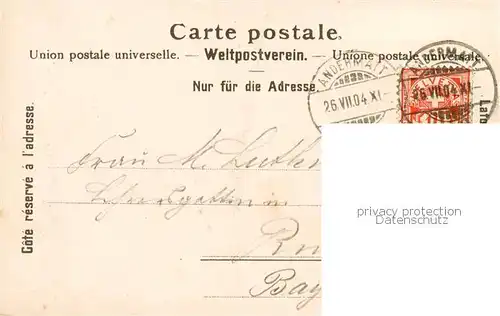 Carte postale.
Union postale universelle. — Weltpostverein. — Unione postale universale
Nur für die Adresse.
ANDERMATT
26.VII.04.XI
ANDERMATT
26.VII.04.XI
Côté réservé à l'adresse.
Frau M. Luth
Lehrersgattin in
Bay
privacy protection
Datenschutz